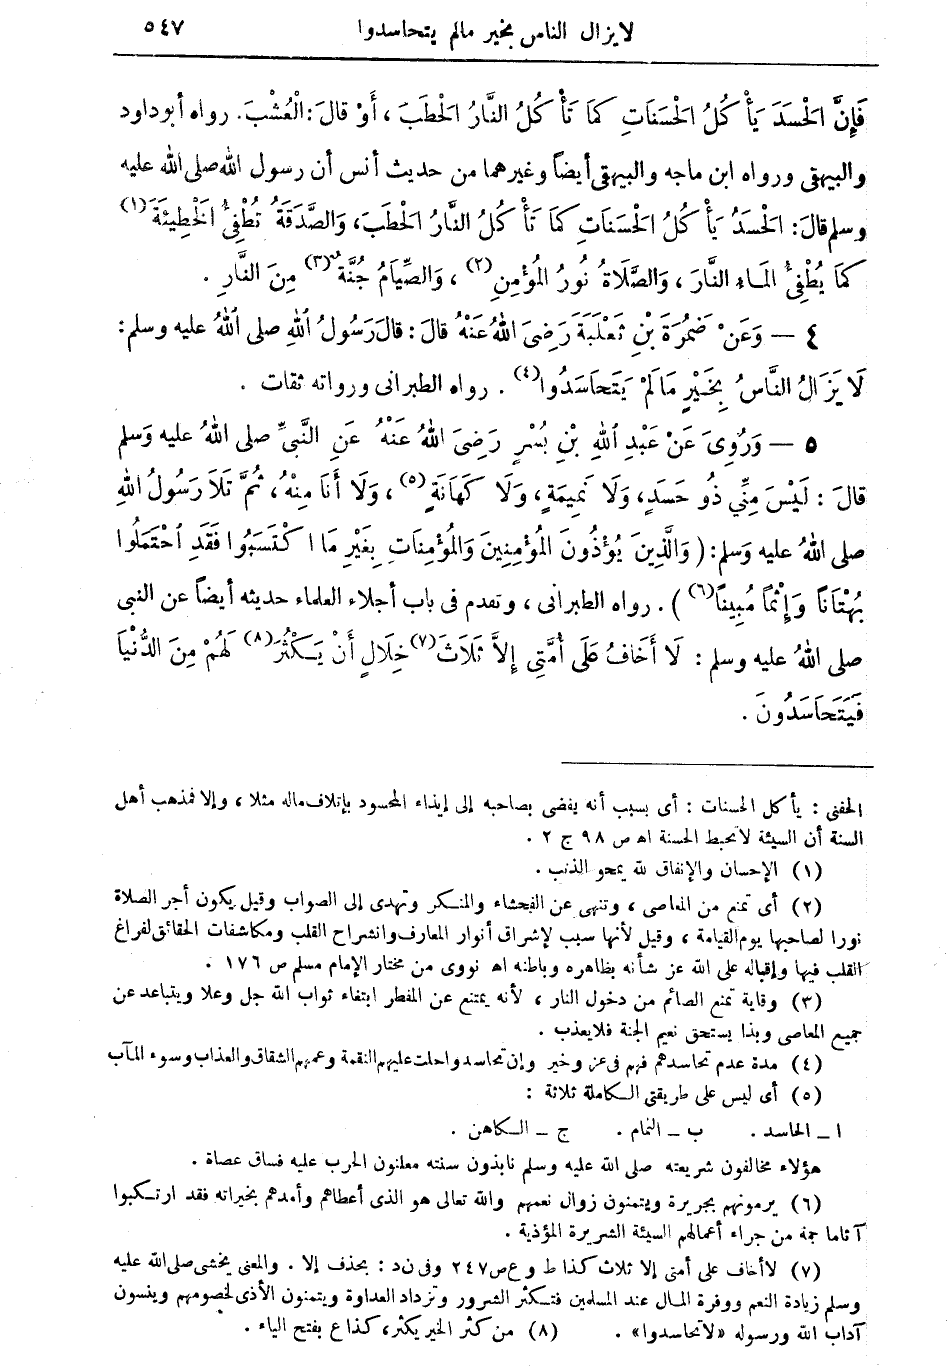 لايزال الناس بخير مالم يتحاسدوا ٥٤٧
فَإِنَّ الْحَسَدَ يَأْكُلُ الْحَسَنَاتِ كَمَا تَأْكُلُ النَّارُ الْحَطَبَ ، أَوْ قالَ : الْعُشْبَ . رواه أبو داود
والبيهقى ورواه ابن ماجه والبيهقى أيضاً وغيرهما من حديث أنس أن رسول الله صلى الله عليه
وسلم قالَ : الْحَسَدُ يَأْكُلُ الْحَسَنَاتِ كَمَا تَأْكُلُ النَّارُ الْحَطَبَ ، وَالصَّدَقَةُ تُطْفِئُ الْخَطِيئَةَ (١)
كَمَا يُطْفِئُ الْمَاءِ النَّارَ ، وَالصَّلَاةُ نُورُ الْمُؤْمِنِ (٢) ، وَالصِّيَامُ جُنَّةٌ (٣) مِنَ النَّارِ .
٤ — وَعَنْ ضَمْرَةَ بْنِ ثَعْلَبَةَ رَضِىَ اللهُ عَنْهُ قالَ : قالَ رَسُولُ اللهِ صلى اللهُ عليه وسلم :
لَا يَزَالُ النَّاسُ بِخَيْرٍ مَالَمْ يَتَحَاسَدُوا (٤) . رواه الطبرانى ورواته ثقات .
٥ — وَرُوِىَ عَنْ عَبْدِ اللهِ بْنِ بُسْرٍ رَضِىَ اللهُ عَنْهُ عَنِ النَّبِىِّ صلى اللهُ عليه وَسلم
قالَ : لَيْسَ مِنِّي ذُو حَسَدٍ ، وَلَا نَمِيمَةٍ ، وَلَا كَهَانَةٍ (٥) ، وَلَا أَنَا مِنْهُ ، ثُمَّ تَلَا رَسُولُ اللهِ
صلى اللهُ عليه وَسلم : ( وَالَّذِينَ يُؤْذُونَ الْمُؤْمِنِينَ وَالْمُؤْمِنَاتِ بِغَيْرِ مَا اكْتَسَبُوا فَقَدِ احْتَمَلُوا
بُهْتَاناً وَإِثْماً مُبِيناً (٦) ) . رواه الطبرانى ، وتقدم فى باب أجلاء العلماء حديثه أيضاً عن النبى
صلى اللهُ عليه وسلم : لَا أَخَافُ عَلَى أُمَّتِى إِلاَّ ثَلَاثَ (٧) خِلَالٍ أَنْ يَكْثُرَ (٨) لَهُمْ مِنَ الدُّنْيَا
فَيَتَحَاسَدُونَ .
الحفنى : يأكل الحسنات : أى بسبب أنه يفضى بصاحبه إلى إيذاء المحسود بإتلاف ماله مثلا ، وإلا فمذهب أهل
السنة أن السيئة لاتحبط الحسنة اهـ ص ٩٨ ج ٢ .
(١) الإحسان والإنفاق لله يمحو الذنب .
(٢) أى تمنع من المعاصى ، وتنهى عن الفحشاء والمنكر وتهدى إلى الصواب وقيل يكون أجر الصلاة
نورا لصاحبها يوم القيامة ، وقيل لأنها سبب لإشراق أنوار المعارف وانشراح القلب ومكاشفات الحقائق لفراغ
القلب فيها وإقباله على الله عز شأنه بظاهره وباطنه اهـ نووى من مختار الإمام مسلم ص ١٧٦ .
(٣) وقاية تمنع الصائم من دخول النار ، لأنه يمتنع عن المفطر ابتغاء ثواب الله جل وعلا ويتباعد عن
جميع المعاصى وبذا يستحق نعيم الجنة فلا يعذب .
(٤) مدة عدم تحاسدهم فهم فى عز وخير وإن تحاسدوا حلت عليهم النقمة وعمهم الشقاق والعذاب وسوء المآب
(٥) أى ليس على طريقتى الكاملة ثلاثة :
ا ـ الحاسد . ب ـ النمام . ج ـ الكاهن .
هؤلاء مخالفون شريعته صلى الله عليه وسلم نابذون سنته معلنون الحرب عليه فساق عصاة .
(٦) يرمونهم بجريرة ويتمنون زوال نعمهم والله تعالى هو الذى أعطاهم وأمدهم بخيراته فقد ارتكبوا
آثاما جمة من جراء أعمالهم السيئة الشريرة المؤذية .
(٧) لا أخاف على أمتى إلا ثلاث كذا ط وع ص ٢٤٧ وفى ن د : بحذف إلا . والمعنى يخشى صلى الله عليه
وسلم زيادة النعم ووفرة المال عند المسلمين فتكثر الشرور وتزداد العداوة ويتمنون الأذى لخصومهم وينسون
آداب الله ورسوله « لا تحاسدوا » . (٨) من كثر الخير يكثر ، كذا ع بفتح الياء .